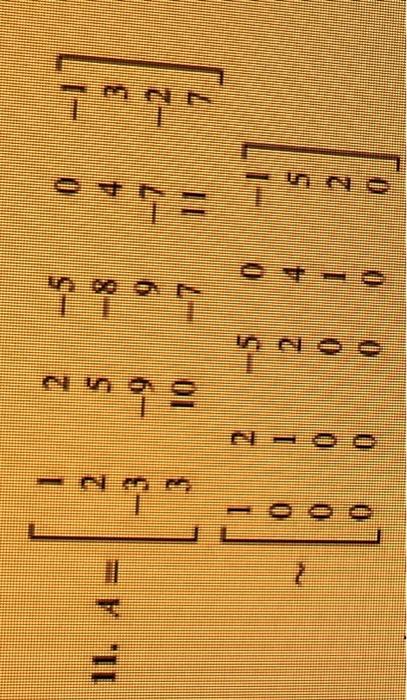 1 2 -5 0 -1
11. A = 2 5 -8 4 3
-3 -9 9 -7 -2
3 10 -7 11 7
1 2 -5 0 -1
~ 0 1 2 4 5
0 0 0 1 2
0 0 0 0 0